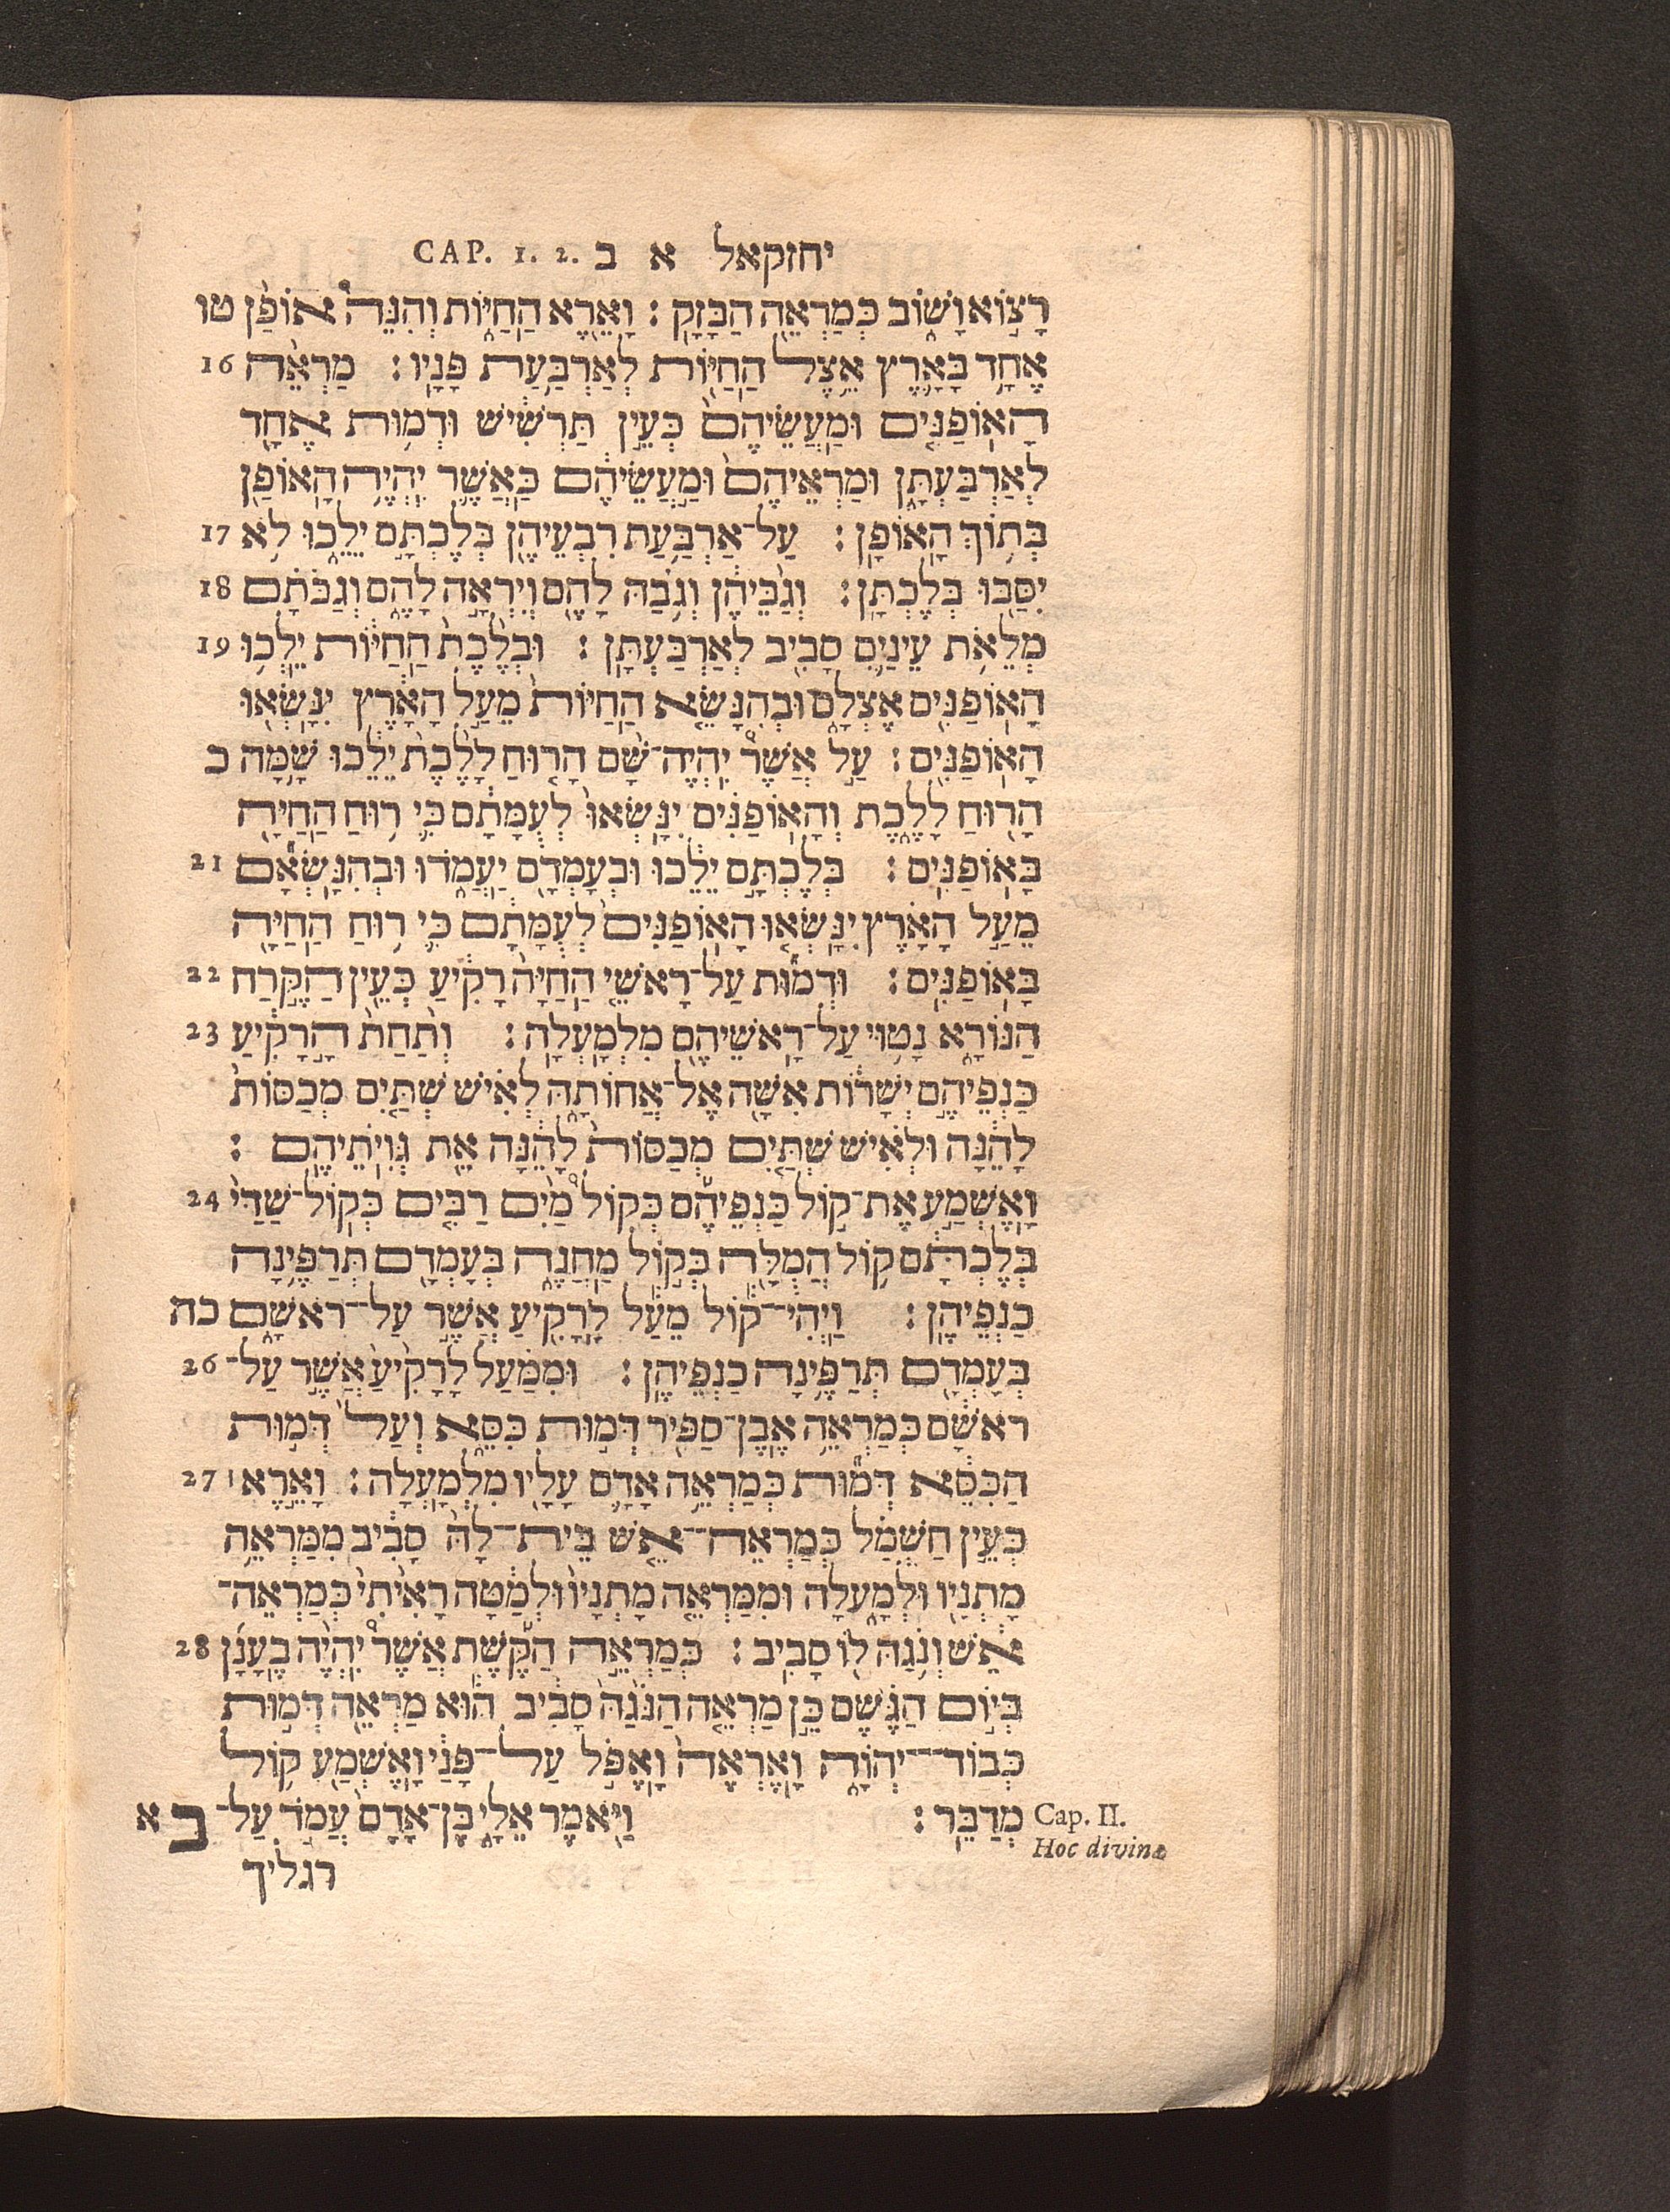 יחזקאל א ב CAP. 1. 2.
רָצ֣וֹא וָשׁ֑וֹב כְּמַרְאֵ֖ה הַבָּזָֽק׃ וָאֵ֖רֶא הַחַיּ֑וֹת וְהִנֵּה֩ אוֹפַ֨ן טו
אֶחָ֥ד בָּאָ֛רֶץ אֵ֥צֶל הַחַיּ֖וֹת לְאַרְבַּ֥עַת פָּנָֽיו׃ מַרְאֵ֨ה 16
הָאוֹפַנִּ֤ים וּמַעֲשֵׂיהֶם֙ כְּעֵ֣ין תַּרְשִׁ֔ישׁ וּדְמ֥וּת אֶחָ֖ד
לְאַרְבַּעְתָּ֑ן וּמַרְאֵיהֶם֙ וּמַ֣עֲשֵׂיהֶ֔ם כַּאֲשֶׁ֛ר יִהְיֶ֥ה הָאוֹפַ֖ן
בְּת֥וֹךְ הָאוֹפָֽן׃ עַל־אַרְבַּ֥עַת רִבְעֵיהֶ֖ן בְּלֶכְתָּ֣ם יֵלֵ֑כוּ לֹ֥א 17
יִסַּ֖בּוּ בְּלֶכְתָּֽן׃ וְגַ֨בֵּיהֶ֔ן וְגֹ֥בַהּ לָהֶ֖ם וְיִרְאָ֣ה לָהֶ֑ם וְגַבֹּתָ֗ם 18
מְלֵאֹ֥ת עֵינַ֛יִם סָבִ֖יב לְאַרְבַּעְתָּֽן׃ וּבְלֶ֙כֶת֙ הַֽחַיּ֔וֹת יֵלְכ֥וּ 19
הָאוֹפַנִּ֖ים אֶצְלָ֑ם וּבְהִנָּשֵׂ֤א הַחַיּוֹת֙ מֵעַ֣ל הָאָ֔רֶץ יִנָּשְׂא֖וּ
הָאוֹפַנִּֽים׃ עַ֣ל אֲשֶׁר֩ יִֽהְיֶה־שָּׁ֨ם הָר֤וּחַ לָלֶ֙כֶת֙ יֵלֵ֔כוּ שָׁ֥מָּה כ
הָר֖וּחַ לָלֶ֑כֶת וְהָאוֹפַנִּ֗ים יִנָּשְׂאוּ֙ לְעֻמָּתָ֔ם כִּ֛י ר֥וּחַ הַחַיָּ֖ה
בָּאוֹפַנִּֽים׃ בְּלֶכְתָּ֣ם יֵלֵ֔כוּ וּבְעָמְדָ֖ם יַֽעֲמֹ֑דוּ וּֽבְהִנָּשְׂאָ֞ם 21
מֵעַ֣ל הָאָ֗רֶץ יִנָּשְׂא֤וּ הָאֽוֹפַנִּים֙ לְעֻמָּתָ֔ם כִּ֛י ר֥וּחַ הַחַיָּ֖ה
בָּאוֹפַנִּֽים׃ וּדְמ֞וּת עַל־רָאשֵׁ֤י הַֽחַיָּה֙ רָקִ֔יעַ כְּעֵ֖ין הַקֶּ֣רַח 22
הַנּוֹרָ֑א נָט֥וּי עַל־רָאשֵׁיהֶ֖ם מִלְמָֽעְלָה׃ וְתַ֙חַת֙ הָרָקִ֔יעַ 23
כַּנְפֵיהֶ֣ם יְשָׁר֔וֹת אִשָּׁ֖ה אֶל־אֲחוֹתָ֑הּ לְאִ֗ישׁ שְׁתַּ֤יִם מְכַסּוֹת֙
לָהֵ֔נָּה וּלְאִ֗ישׁ שְׁתַּ֤יִם מְכַסּוֹת֙ לָהֵ֔נָּה אֵ֖ת גְּוִיֹּתֵיהֶֽם׃
וָאֶשְׁמַ֣ע אֶת־ק֣וֹל כַּנְפֵיהֶ֡ם כְּקוֹל֩ מַ֨יִם רַבִּ֤ים כְּקוֹל־שַׁדַּי֙ 24
בְּלֶכְתָּ֔ם ק֥וֹל הֲמֻלָּ֖ה כְּק֣וֹל מַחֲנֶ֑ה בְּעָמְדָ֖ם תְּרַפֶּ֥ינָה
כַנְפֵיהֶֽן׃ וַיְהִי־ק֕וֹל מֵעַ֕ל לָרָקִ֖יעַ אֲשֶׁ֣ר עַל־רֹאשָׁ֑ם כה
בְּעָמְדָ֖ם תְּרַפֶּ֥ינָה כַנְפֵיהֶֽן׃ וּמִמַּ֗עַל לָרָקִ֙יעַ֙ אֲשֶׁ֣ר עַל־ 26
רֹאשָׁ֔ם כְּמַרְאֵ֥ה אֶֽבֶן־סַפִּ֖יר דְּמ֣וּת כִּסֵּ֑א וְעַל֙ דְּמ֣וּת
הַכִּסֵּ֔א דְּמ֞וּת כְּמַרְאֵ֥ה אָדָ֛ם עָלָ֖יו מִלְמָֽעְלָה׃ וָאֵ֣רֶא׀ 27
כְּעֵ֣ין חַשְׁמַ֗ל כְּמַרְאֵה־אֵ֤שׁ בֵּֽית־לָהּ֙ סָבִ֔יב מִמַּרְאֵ֥ה
מָתְנָ֖יו וּלְמָ֑עְלָה וּמִמַּרְאֵ֤ה מָתְנָיו֙ וּלְמַ֔טָּה רָאִ֙יתִי֙ כְּמַרְאֵה־
אֵ֔שׁ וְנֹ֥גַהּ ל֖וֹ סָבִֽיב׃ כְּמַרְאֵ֣ה הַקֶּ֡שֶׁת אֲשֶׁר֩ יִֽהְיֶ֨ה בֶעָנָ֜ן 28
בְּי֣וֹם הַגֶּ֗שֶׁם כֵּ֣ן מַרְאֵ֤ה הַנֹּ֙גַהּ֙ סָבִ֔יב ה֕וּא מַרְאֵ֖ה דְּמ֣וּת
כְּבוֹד־יְהוָ֑ה וָֽאֶרְאֶה֙ וָאֶפֹּ֣ל עַל־פָּנַ֔י וָאֶשְׁמַ֖ע ק֥וֹל
Cap. II. מְדַבֵּֽר׃ וַיֹּ֖אמֶר אֵלָ֑י בֶּן־אָדָם֙ עֲמֹ֣ד עַל־ ב א
Hoc divinæ
רגליך